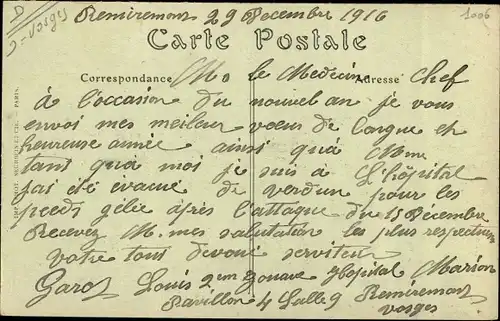 D
J-Vosges
1006
Remiremont 29 Decembre 1916
Carte Postale
Correspondance Adresse
Mo le Medecin Chef
à l'occasion du nouvel an je vous
envoi mes meileur voeux de longue et
heureuse année ainsi qu'à Mme
tant qu'à moi je suis à L'hôpital
jai été évacué de verdun pour les
pieds gélée après l'attaque du 15 Décembre
Recevez M. mes salutation les plus respectueux
votre tout devoué serviteur
Garot Louis 2em Zouave Hopital Marion
Pavillon 4 Salle 9 Remiremont
Vosges
PARIS.